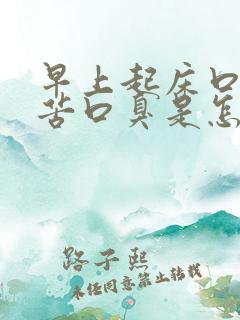 早上起床口
苦口臭是怎
路子熙
未经同意禁止转载